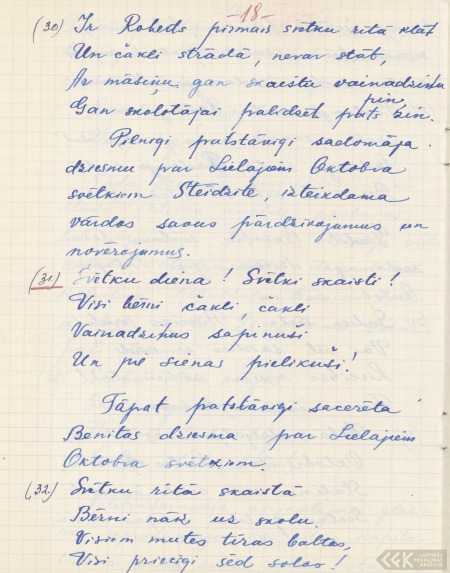 -18-
(30) Ir Roberts pirmais svētku rītā klāt
Un čakli strādā, nevar stāt,
Ar māsiņu gan skaistu vainadziņu
pin,
Gan skolotājai palīdzēt prats zin.
Pilnīgi patstāvīgi sadomāja
dziesmu par Lielajiem Oktobra
svētkiem Steidzīte, izteikdama
vārdos savus pārdzīvojumus un
novērojumus.
(31) Svētku diena! Svētki skaisti!
Visi bērni čakli, čakli
Vainadziņus sapinuši
Un pie sienas pielikuši!
Tāpat patstāvīgi sacerēta
Benitas dziesma par Lielajiem
Oktobra svētkiem.
(32.) Svētku rītā skaistā
Bērni nāk uz skolu.
Visiem mutes tīras baltas,
Visi priecīgi sēd solos!
LATVIEŠU
FOLKLORAS
KRĀTUVE